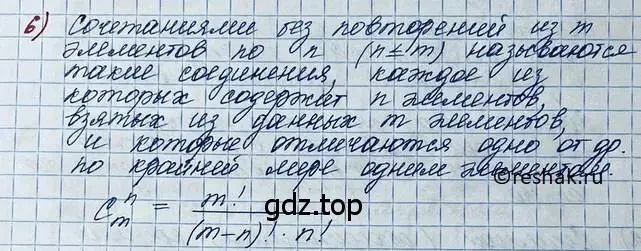 б) Сочетаниями без повторений из m
элементов по n (n ≤ m) называются
такие соединения, каждое из
которых содержит n элементов,
взятых из данных m элементов,
и которые отличаются одно от др.
по крайней мере одним элементом.
© reshak.ru
C_m^n = m! / ((m-n)! · n!)
gdz.top